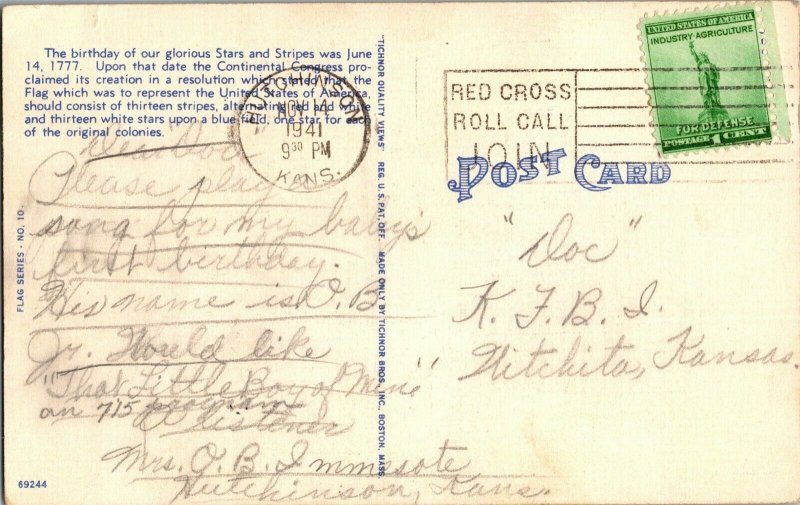 The birthday of our glorious Stars and Stripes was June
14, 1777. Upon that date the Continental Congress pro-
claimed its creation in a resolution which stated that the
Flag which was to represent the United States of America,
should consist of thirteen stripes, alternating red and white
and thirteen white stars upon a blue field, one star for each
of the original colonies.
Dear "Doc"
Please play
song for my baby's
first birthday.
His name is O. B.
Jr. Would like
"That Little Boy of Mine"
on 715 program
A listener
Mrs. O. B. Immasote
Hutchinson, Kans.
69244
FLAG SERIES - NO. 10.
"TICHNOR QUALITY VIEWS" REG. U. S. PAT. OFF. MADE ONLY BY TICHNOR BROS., INC., BOSTON, MASS.
HUTCHINSON
NOV 14
1941
9 30 PM
KANS.
RED CROSS
ROLL CALL
JOIN
UNITED STATES OF AMERICA
INDUSTRY-AGRICULTURE
FOR DEFENSE
POSTAGE 1 CENT
POST CARD
"Doc"
K. F. B. I.
Witchita, Kansas.